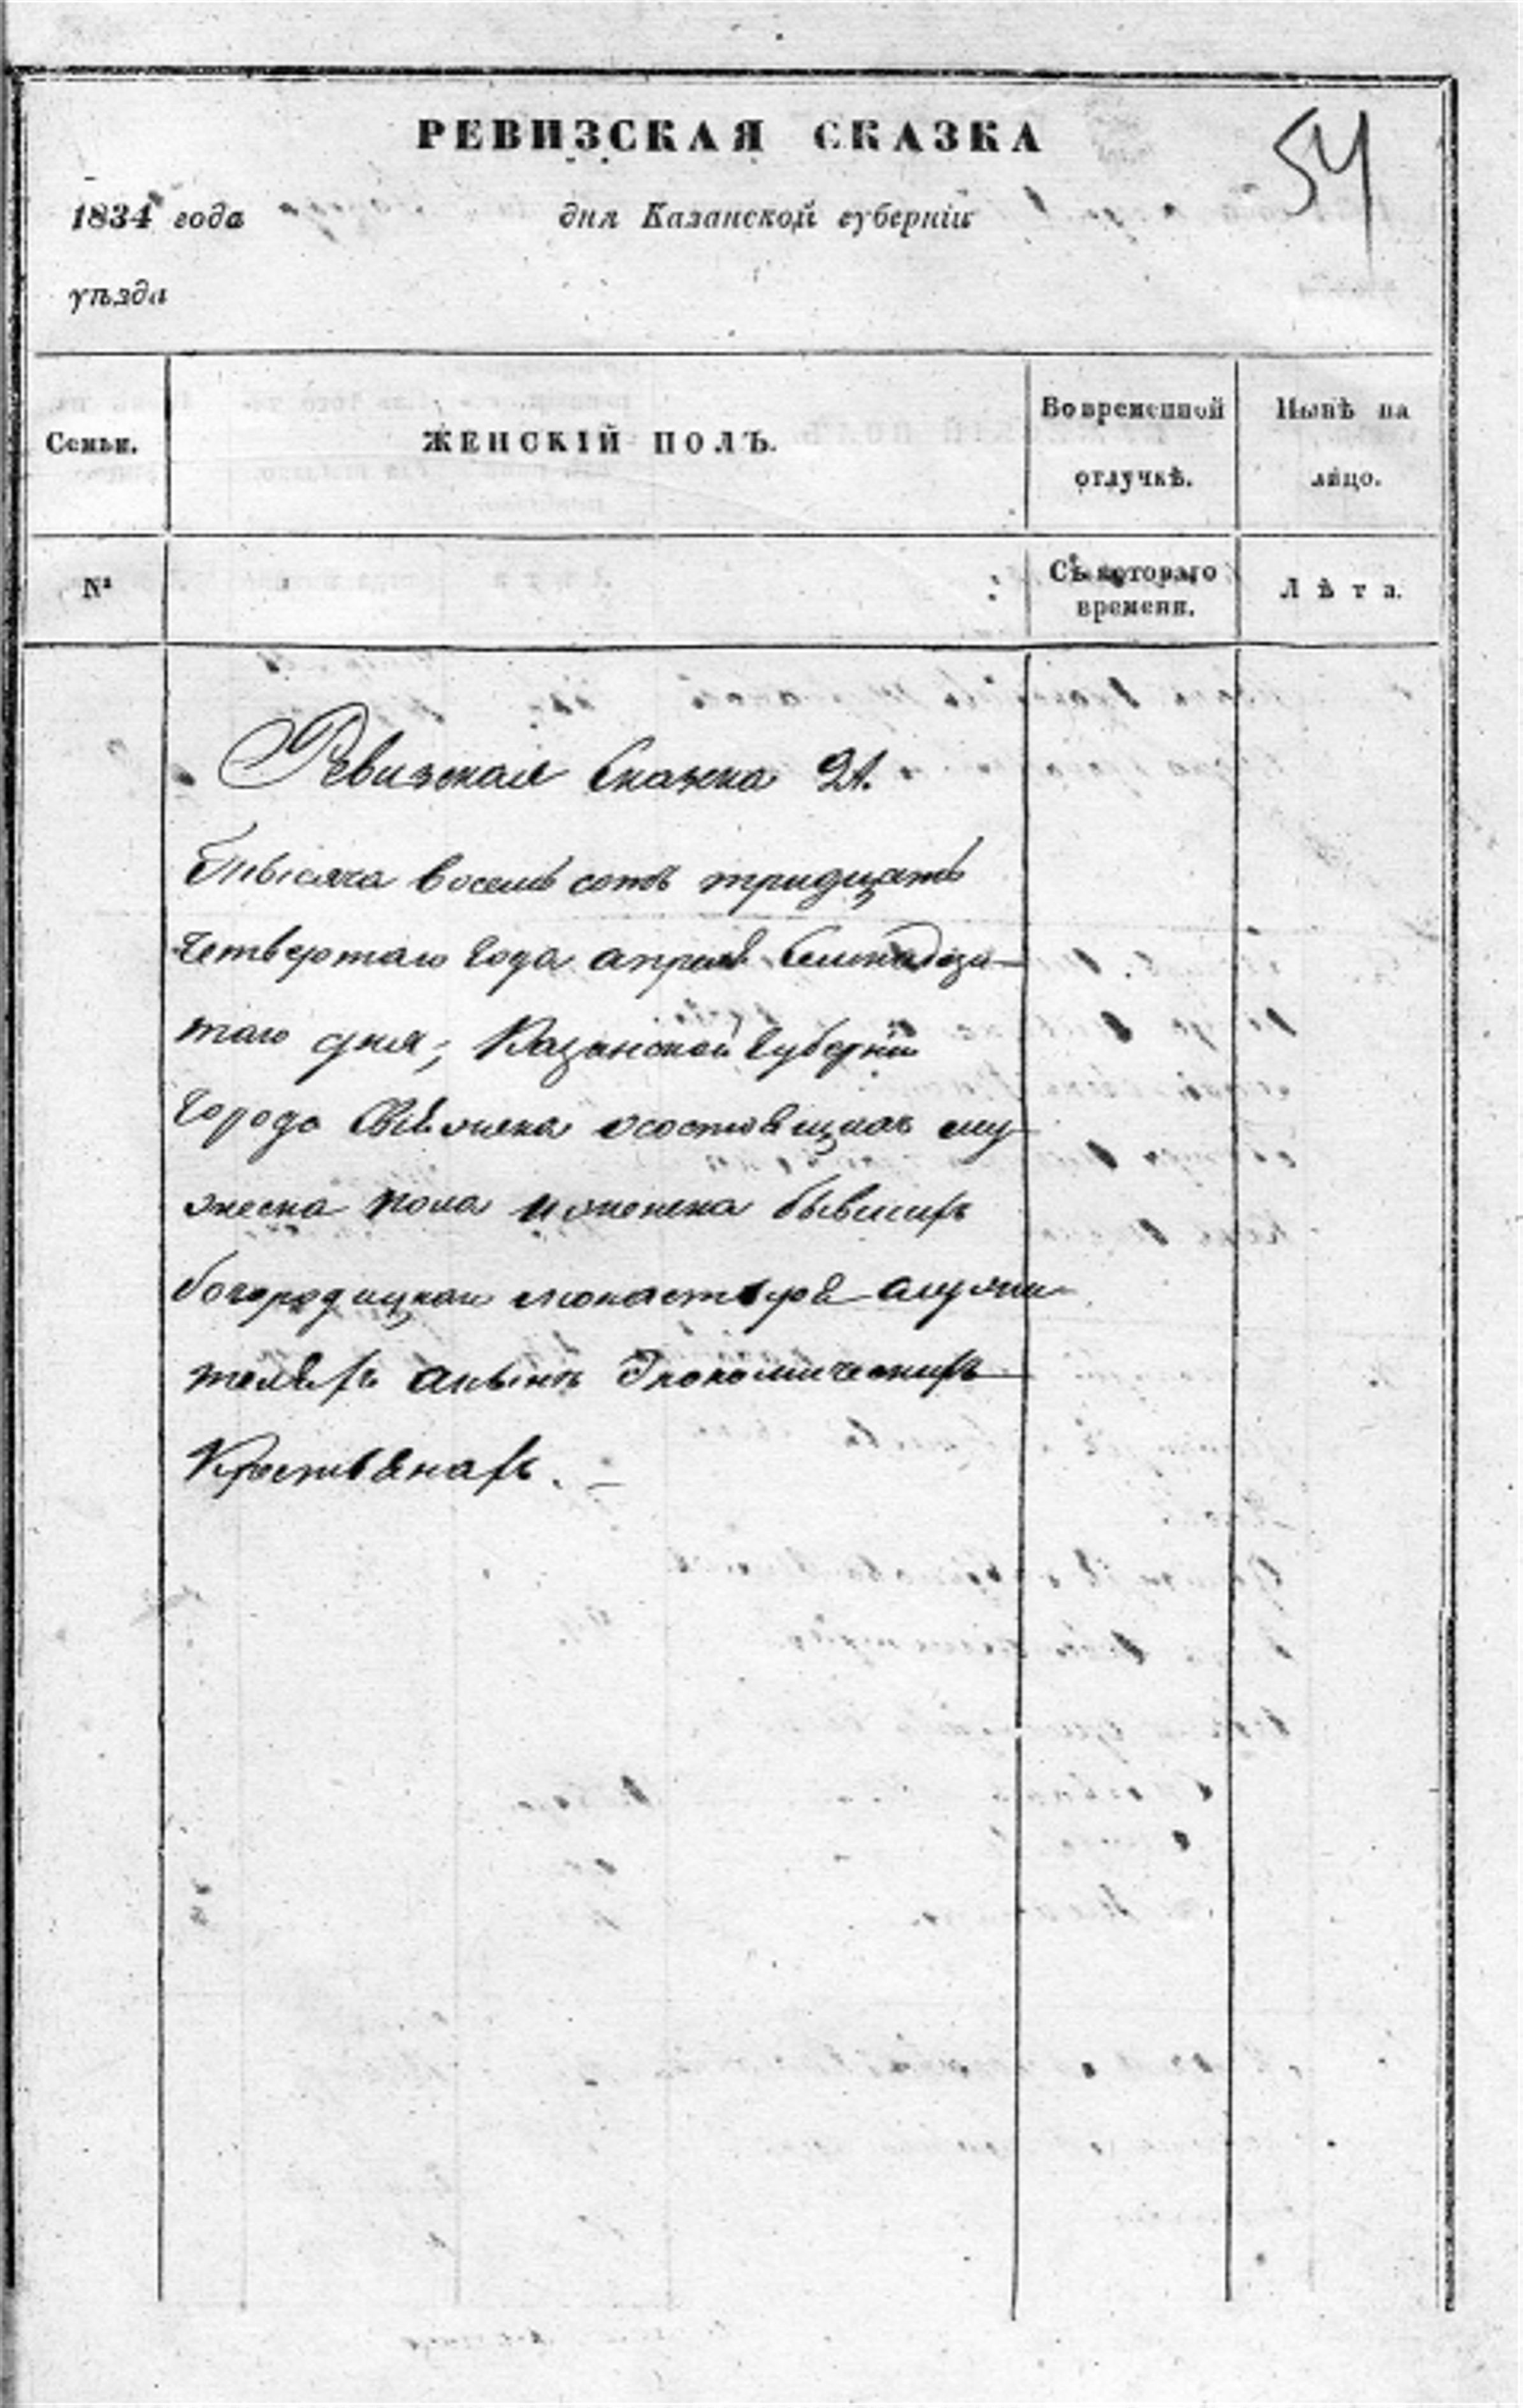 РЕВИЗСКАЯ СКАЗКА
54
1834 года дня Казанской губерніи
уѣзда
Семьи.
ЖЕНСКІЙ ПОЛЪ.
Во временной отлучкѣ.
Нынѣ на лицо.
№
Съ котораго времени.
Лѣта.
Ревизская Сказка 21.
тысяча восемь сотъ тридцать
четвертаго года апреля
таго дня, Казанской Губерніи
города Свіяжска о состоящихъ му
жеска пола и женска бывшихъ
богородицкаго монастыря служи
теляхъ а нынѣ Экономическихъ
Крестьянахъ. —